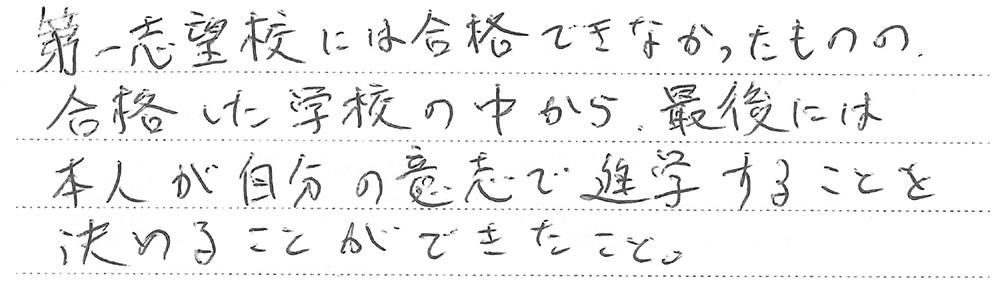 第一志望校には合格できなかったものの、
合格した学校の中から、最後には
本人が自分の意志で進学することを
決めることができたこと。